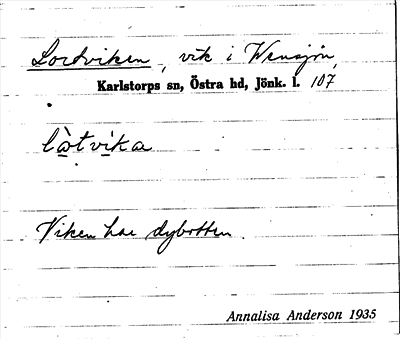 Lortviken, vik i Wensjön,
Karlstorps sn, Östra hd, Jönk. l. 107
lòtvika
Viken har dybotten.
Annalisa Anderson 1935